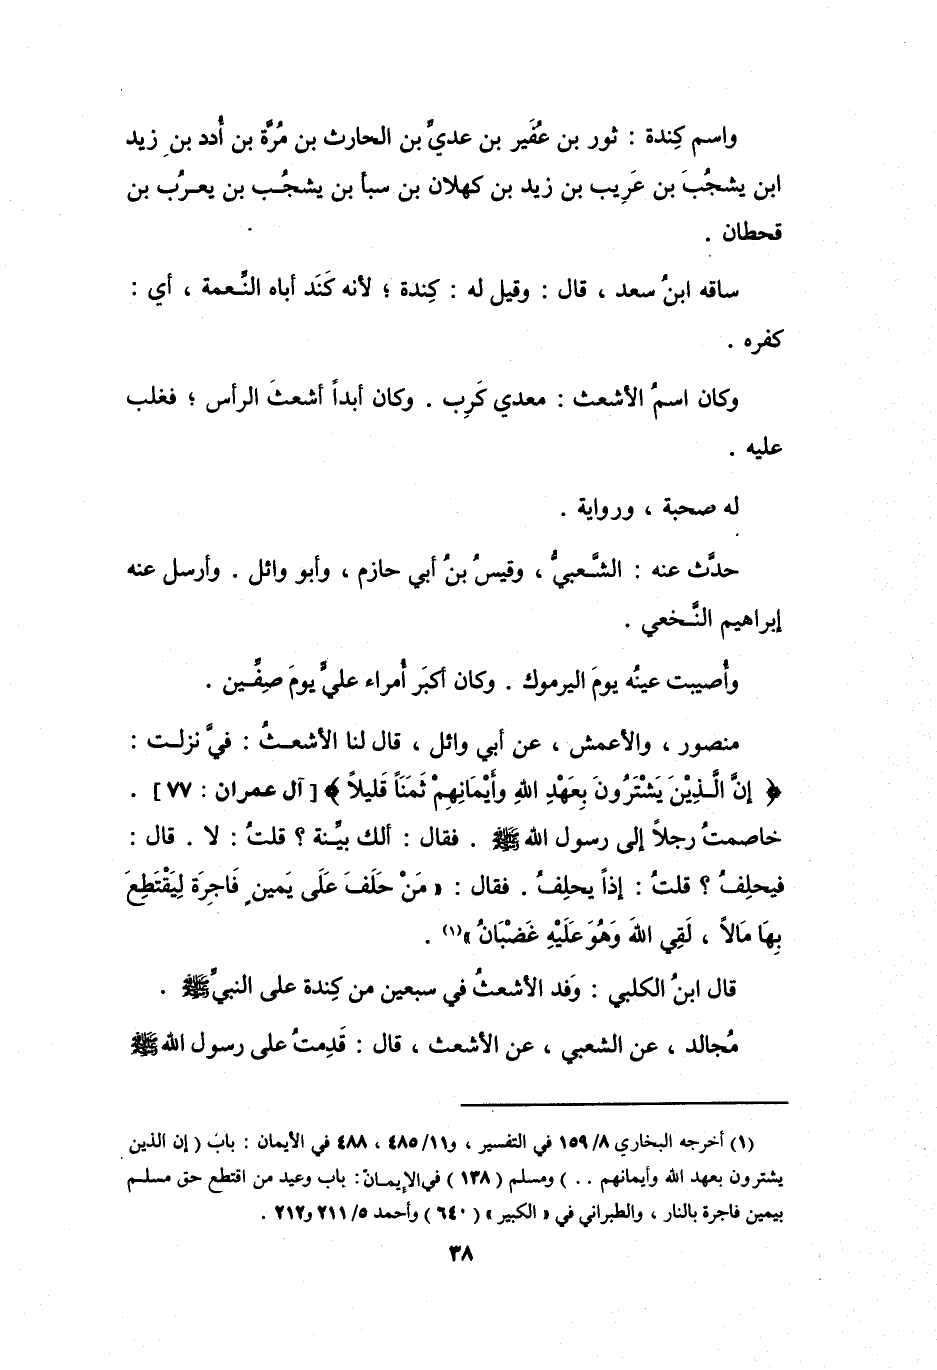 واسم كِندة : ثور بن عُفَير بن عديِّ بن الحارث بن مُرَّة بن أُدد بن زيد
ابن يشجُبَ بن عَرِيب بن زيد بن كهلان بن سبأ بن يشجُب بن يعرُب بن
قحطان .
ساقه ابنُ سعد ، قال : وقيل له : كِندة ؛ لأنه كَنَد أباه النِّعمة ، أي :
كفره .
وكان اسمُ الأشعث : معدي كَرِب . وكان أبداً أشعثَ الرأس ؛ فغلب
عليه .
له صحبة ، ورواية .
حدَّث عنه : الشَّعبيُّ ، وقيسُ بنُ أبي حازم ، وأبو وائل . وأرسل عنه
إبراهيم النَّخعي .
وأُصيبت عينُه يومَ اليرموك . وكان أكبَر أُمراء عليٍّ يومَ صِفِّين .
منصور ، والأعمش ، عن أبي وائل ، قال لنا الأشعثُ : فيَّ نزلت :
﴿ إِنَّ الَّذِيْنَ يَشْتَرُونَ بِعَهْدِ اللهِ وأَيْمَانِهِمْ ثَمَنَاً قَليلاً ﴾ [ آل عمران : ٧٧ ] .
خاصمتُ رجلاً إلى رسول الله ﷺ . فقال : ألك بيِّنة ؟ قلتُ : لا . قال :
فيحلِفُ ؟ قلتُ : إذاً يحلِفُ . فقال : « مَنْ حَلَفَ عَلَى يَمينٍ فَاجِرَة لِيَقْتَطِعَ
بِهَا مَالاً ، لَقِي اللهَ وَهُوَ عَلَيْهِ غَضْبَانُ »(١) .
قال ابنُ الكلبي : وَفد الأشعثُ في سبعين من كِندة على النبيِّ ﷺ .
مُجالد ، عن الشعبي ، عن الأشعث ، قال : قَدِمتُ على رسول الله ﷺ
(١) أخرجه البخاري ٨/ ١٥٩ في التفسير ، و١١/ ٤٨٥ ، ٤٨٨ في الأيمان : باب ( إن الذين
يشترون بعهد الله وأيمانهم . . ) ومسلم ( ١٣٨ ) في الإيمان : باب وعيد من اقتطع حق مسلم
بيمين فاجرة بالنار ، والطبراني في « الكبير » ( ٦٤٠ ) وأحمد ٥/ ٢١١ و٢١٢ .
٣٨